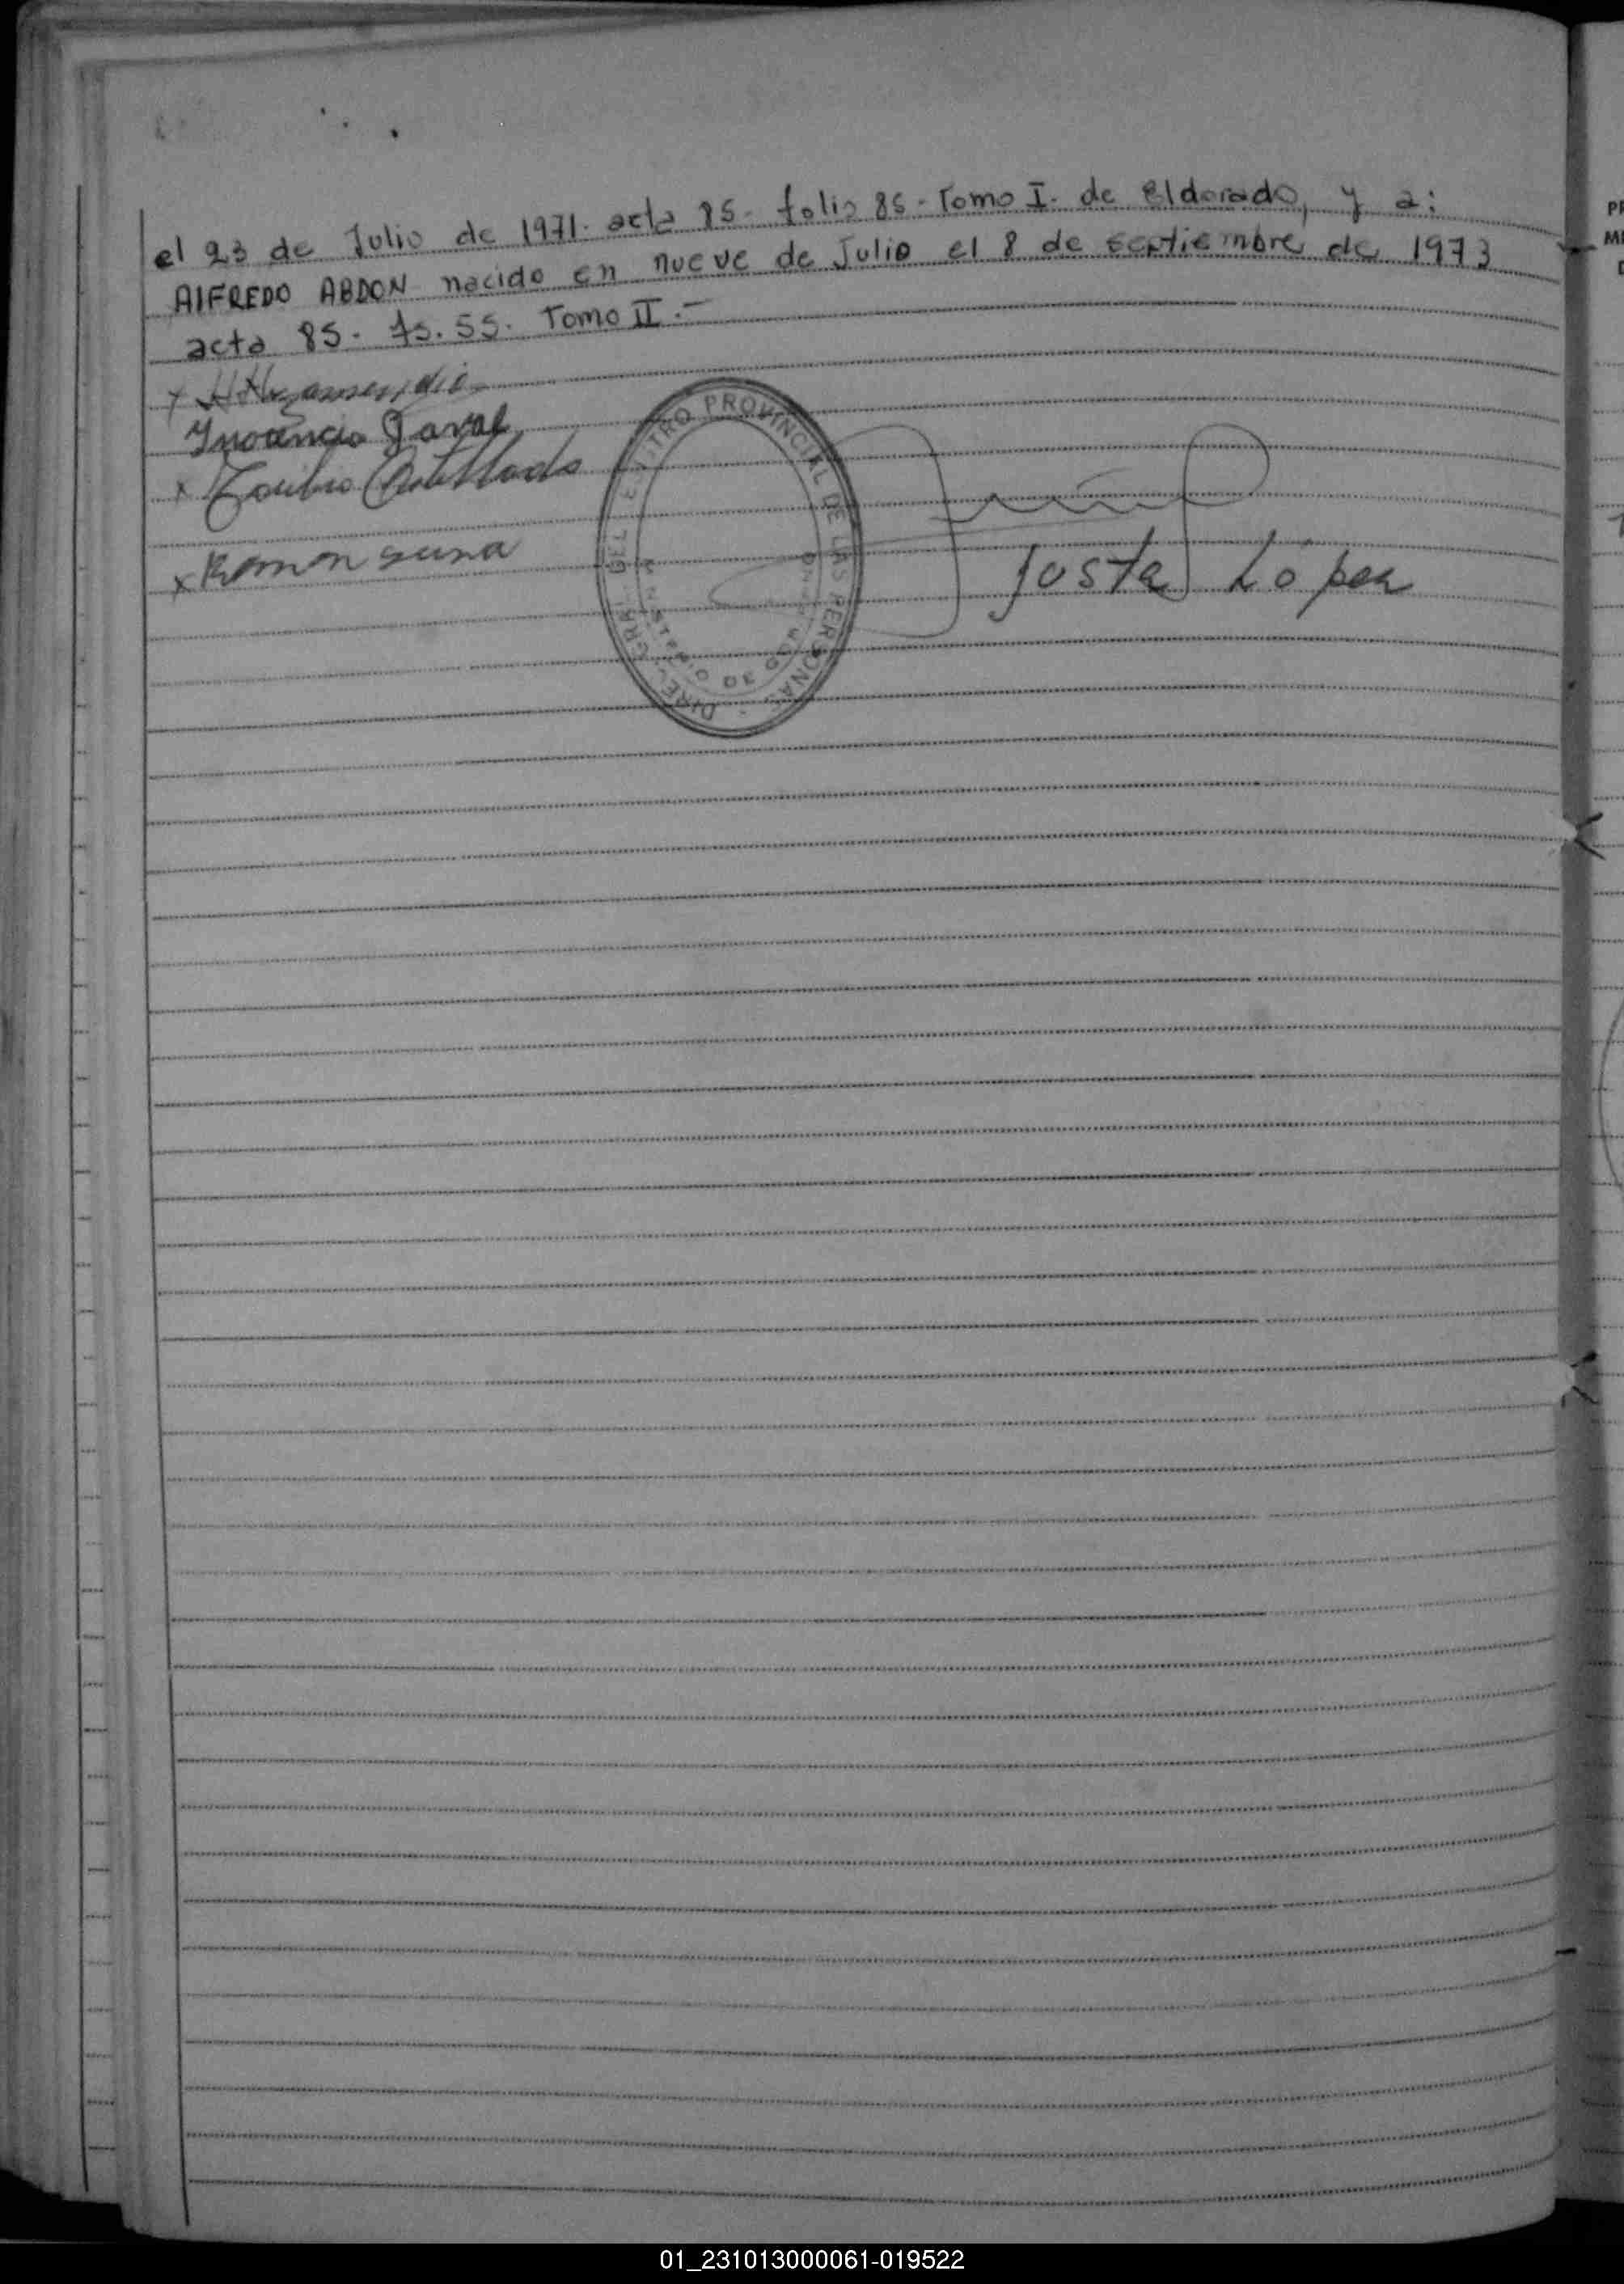 el 23 de Julio de 1971. acta 85. folio 85. Tomo I. de Eldorado, y a:
AlFREDO ABDON nacido en nueve de Julio el 8 de septiembre de 1973
acta 85. fs. 55. Tomo II.-
Inocencio
x Toribio
x Ramon
Justa Lopez
DIREC. GRAL. DEL REGISTRO PROVINCIAL DE LAS PERSONAS -
MINISTERIO DE GOBIERNO
01_231013000061-019522